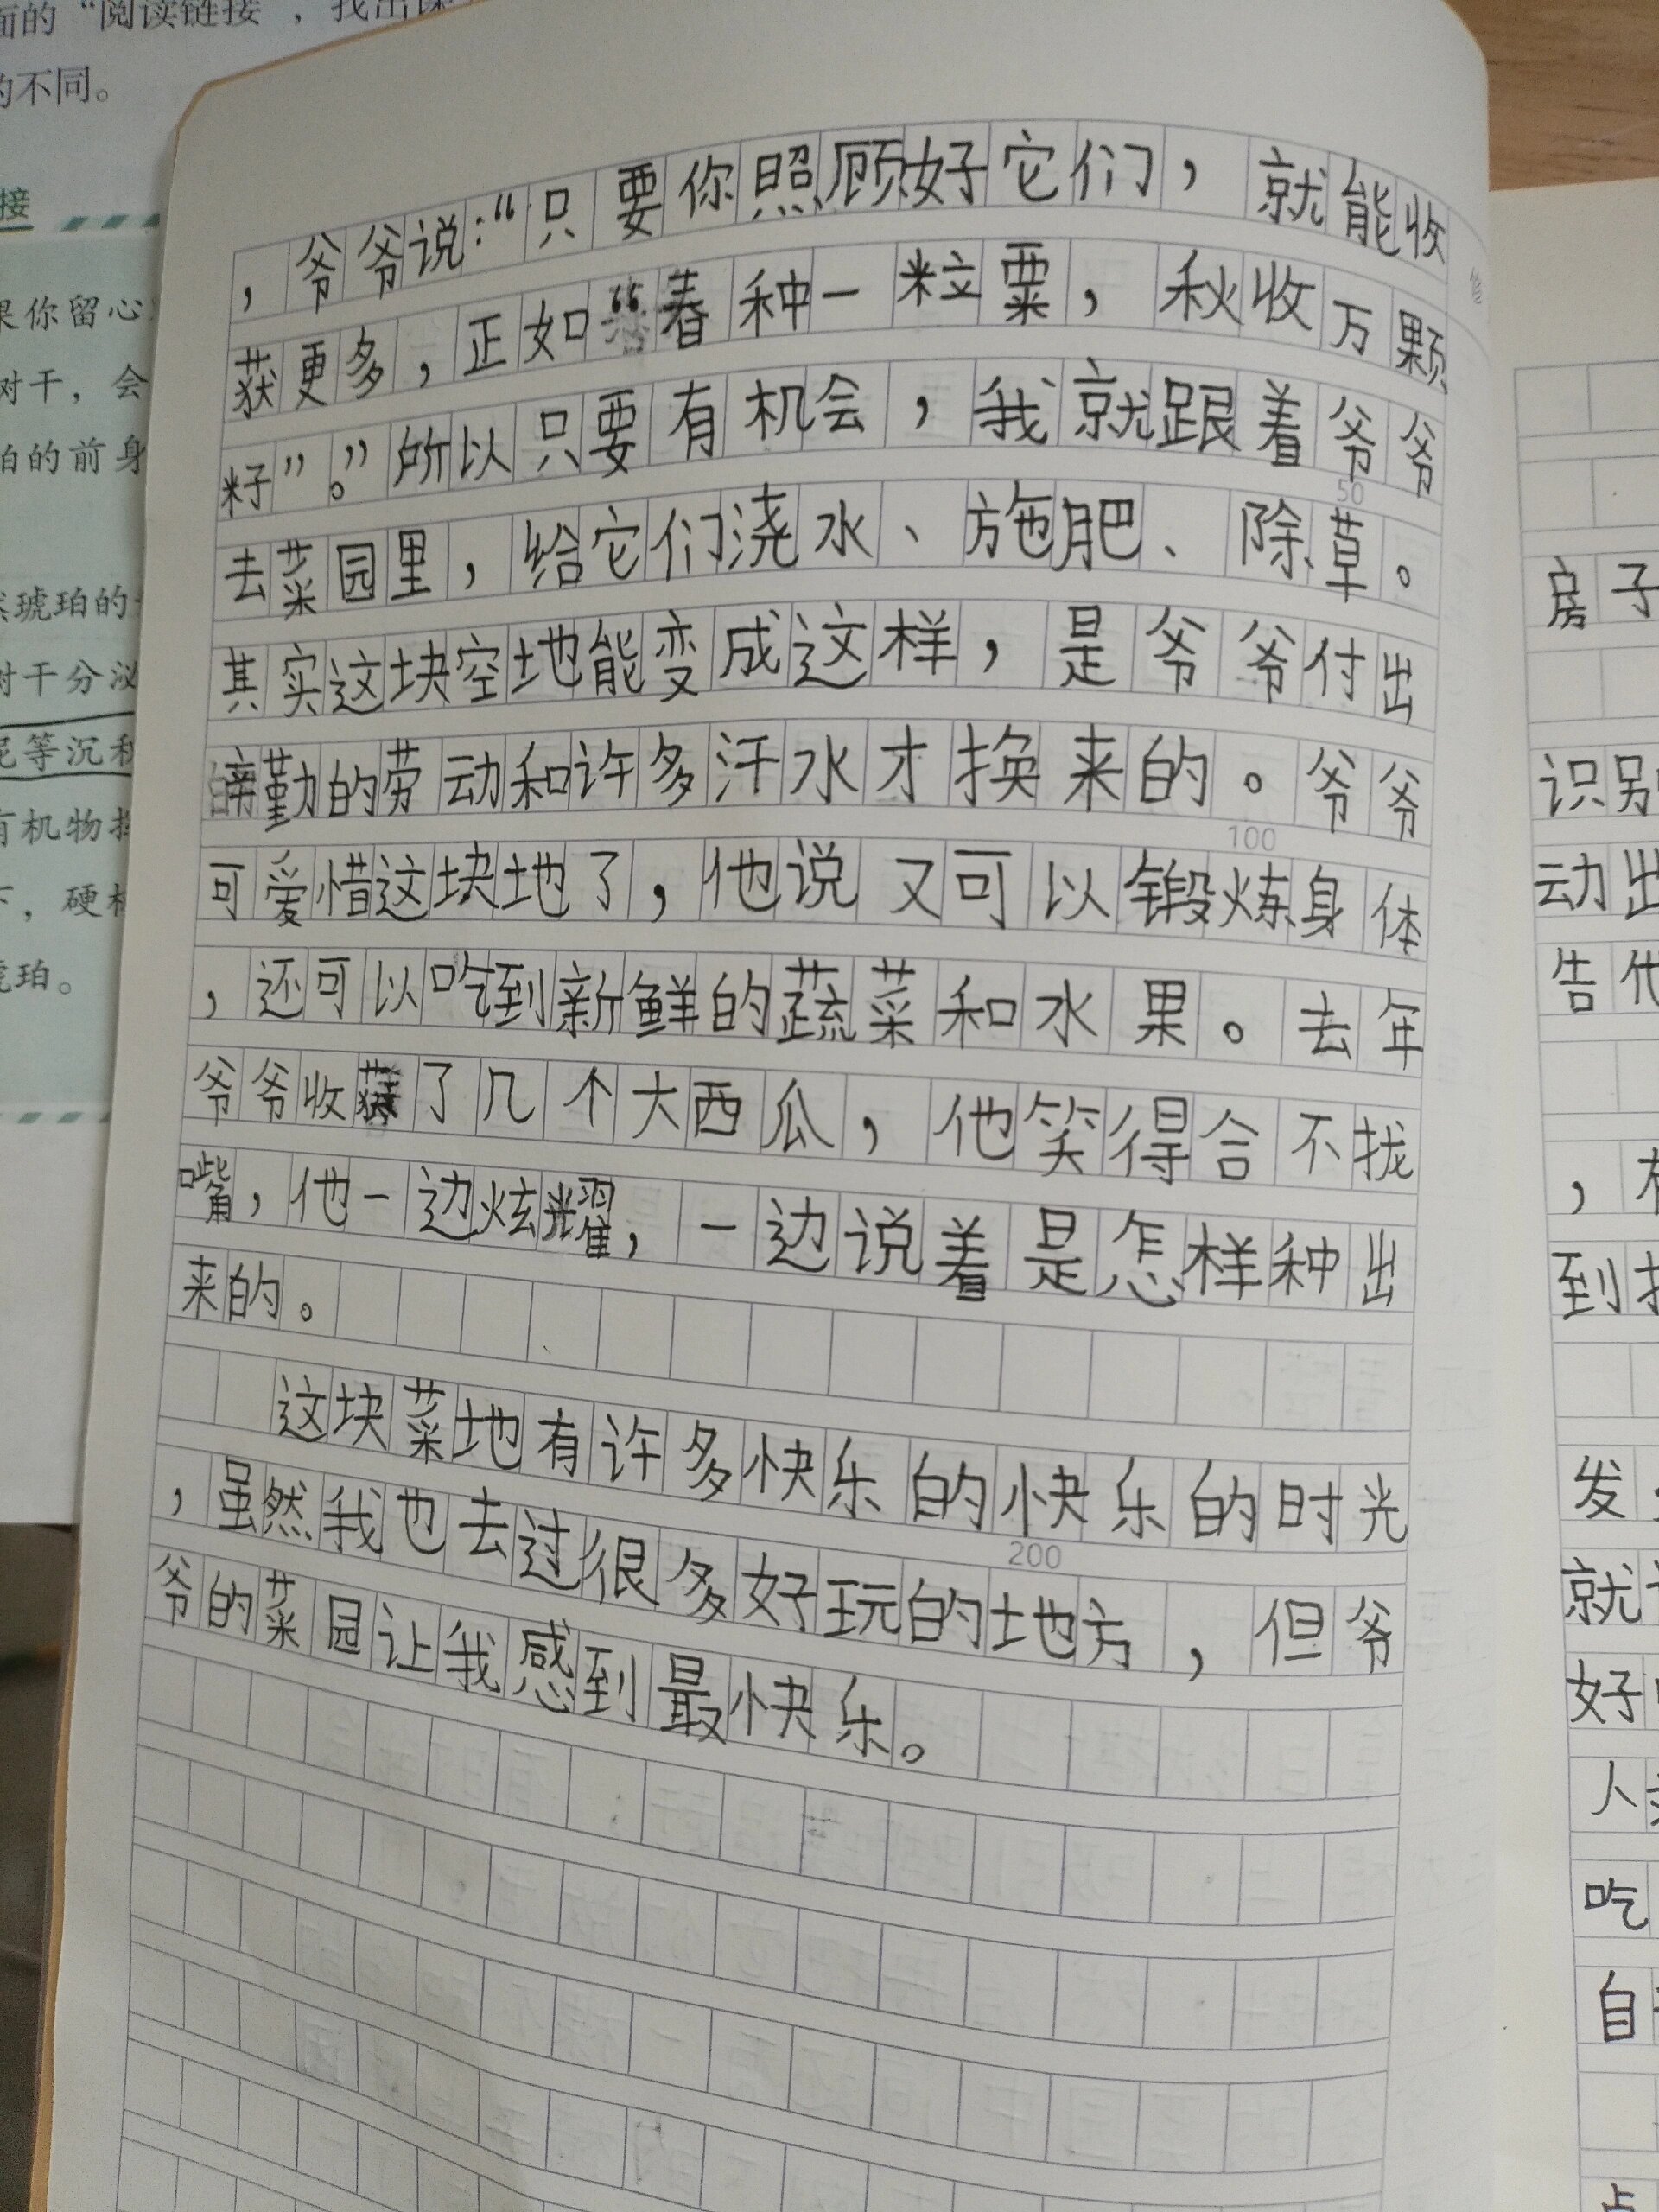 面的“阅读链接”，找出课
的不同。
接
果你留心
树干，会
珀的前身
琥珀的
树干分泌
泥等沉积
有机物
下，硬
琥珀。
，爷爷说：“只要你照顾好它们，就能收
获更多，正如“春种一粒粟，秋收万颗
籽”。”所以只要有机会，我就跟着爷爷
去菜园里，给它们浇水、施肥、除草。
50
其实这块空地能变成这样，是爷爷付出
辛勤的劳动和许多汗水才换来的。爷爷
100
可爱惜这块地了，他说又可以锻炼身体
，还可以吃到新鲜的蔬菜和水果。去年
爷爷收获了几个大西瓜，他笑得合不拢
嘴，他一边炫耀，一边说着是怎样种出
来的。
这块菜地有许多快乐的快乐的时光
，虽然我也去过很多好玩的地方，但爷
200
爷的菜园让我感到最快乐。
房子
识别
动出
告代
，
到
发
就
好
人
吃
自